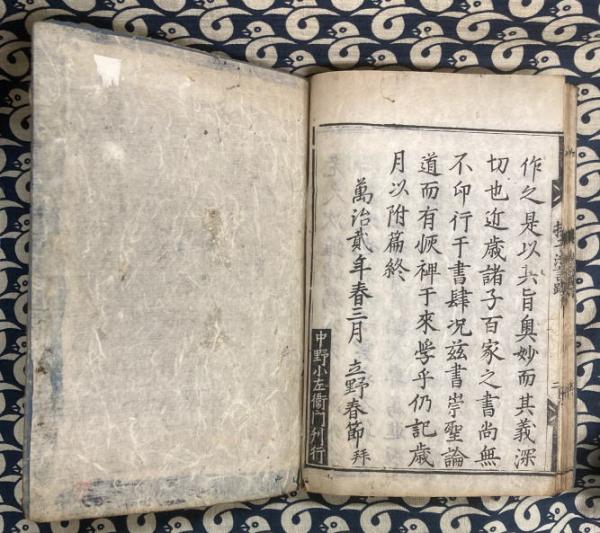 作之是以其旨奥妙而其義深
切也近歳諸子百家之書尚無
不印行于書肆况玆書崇聖論
道而有裨于來學乎仍記歳
月以附篇終
萬治貳年春三月 立野春節拜
中野小左衞門刋行